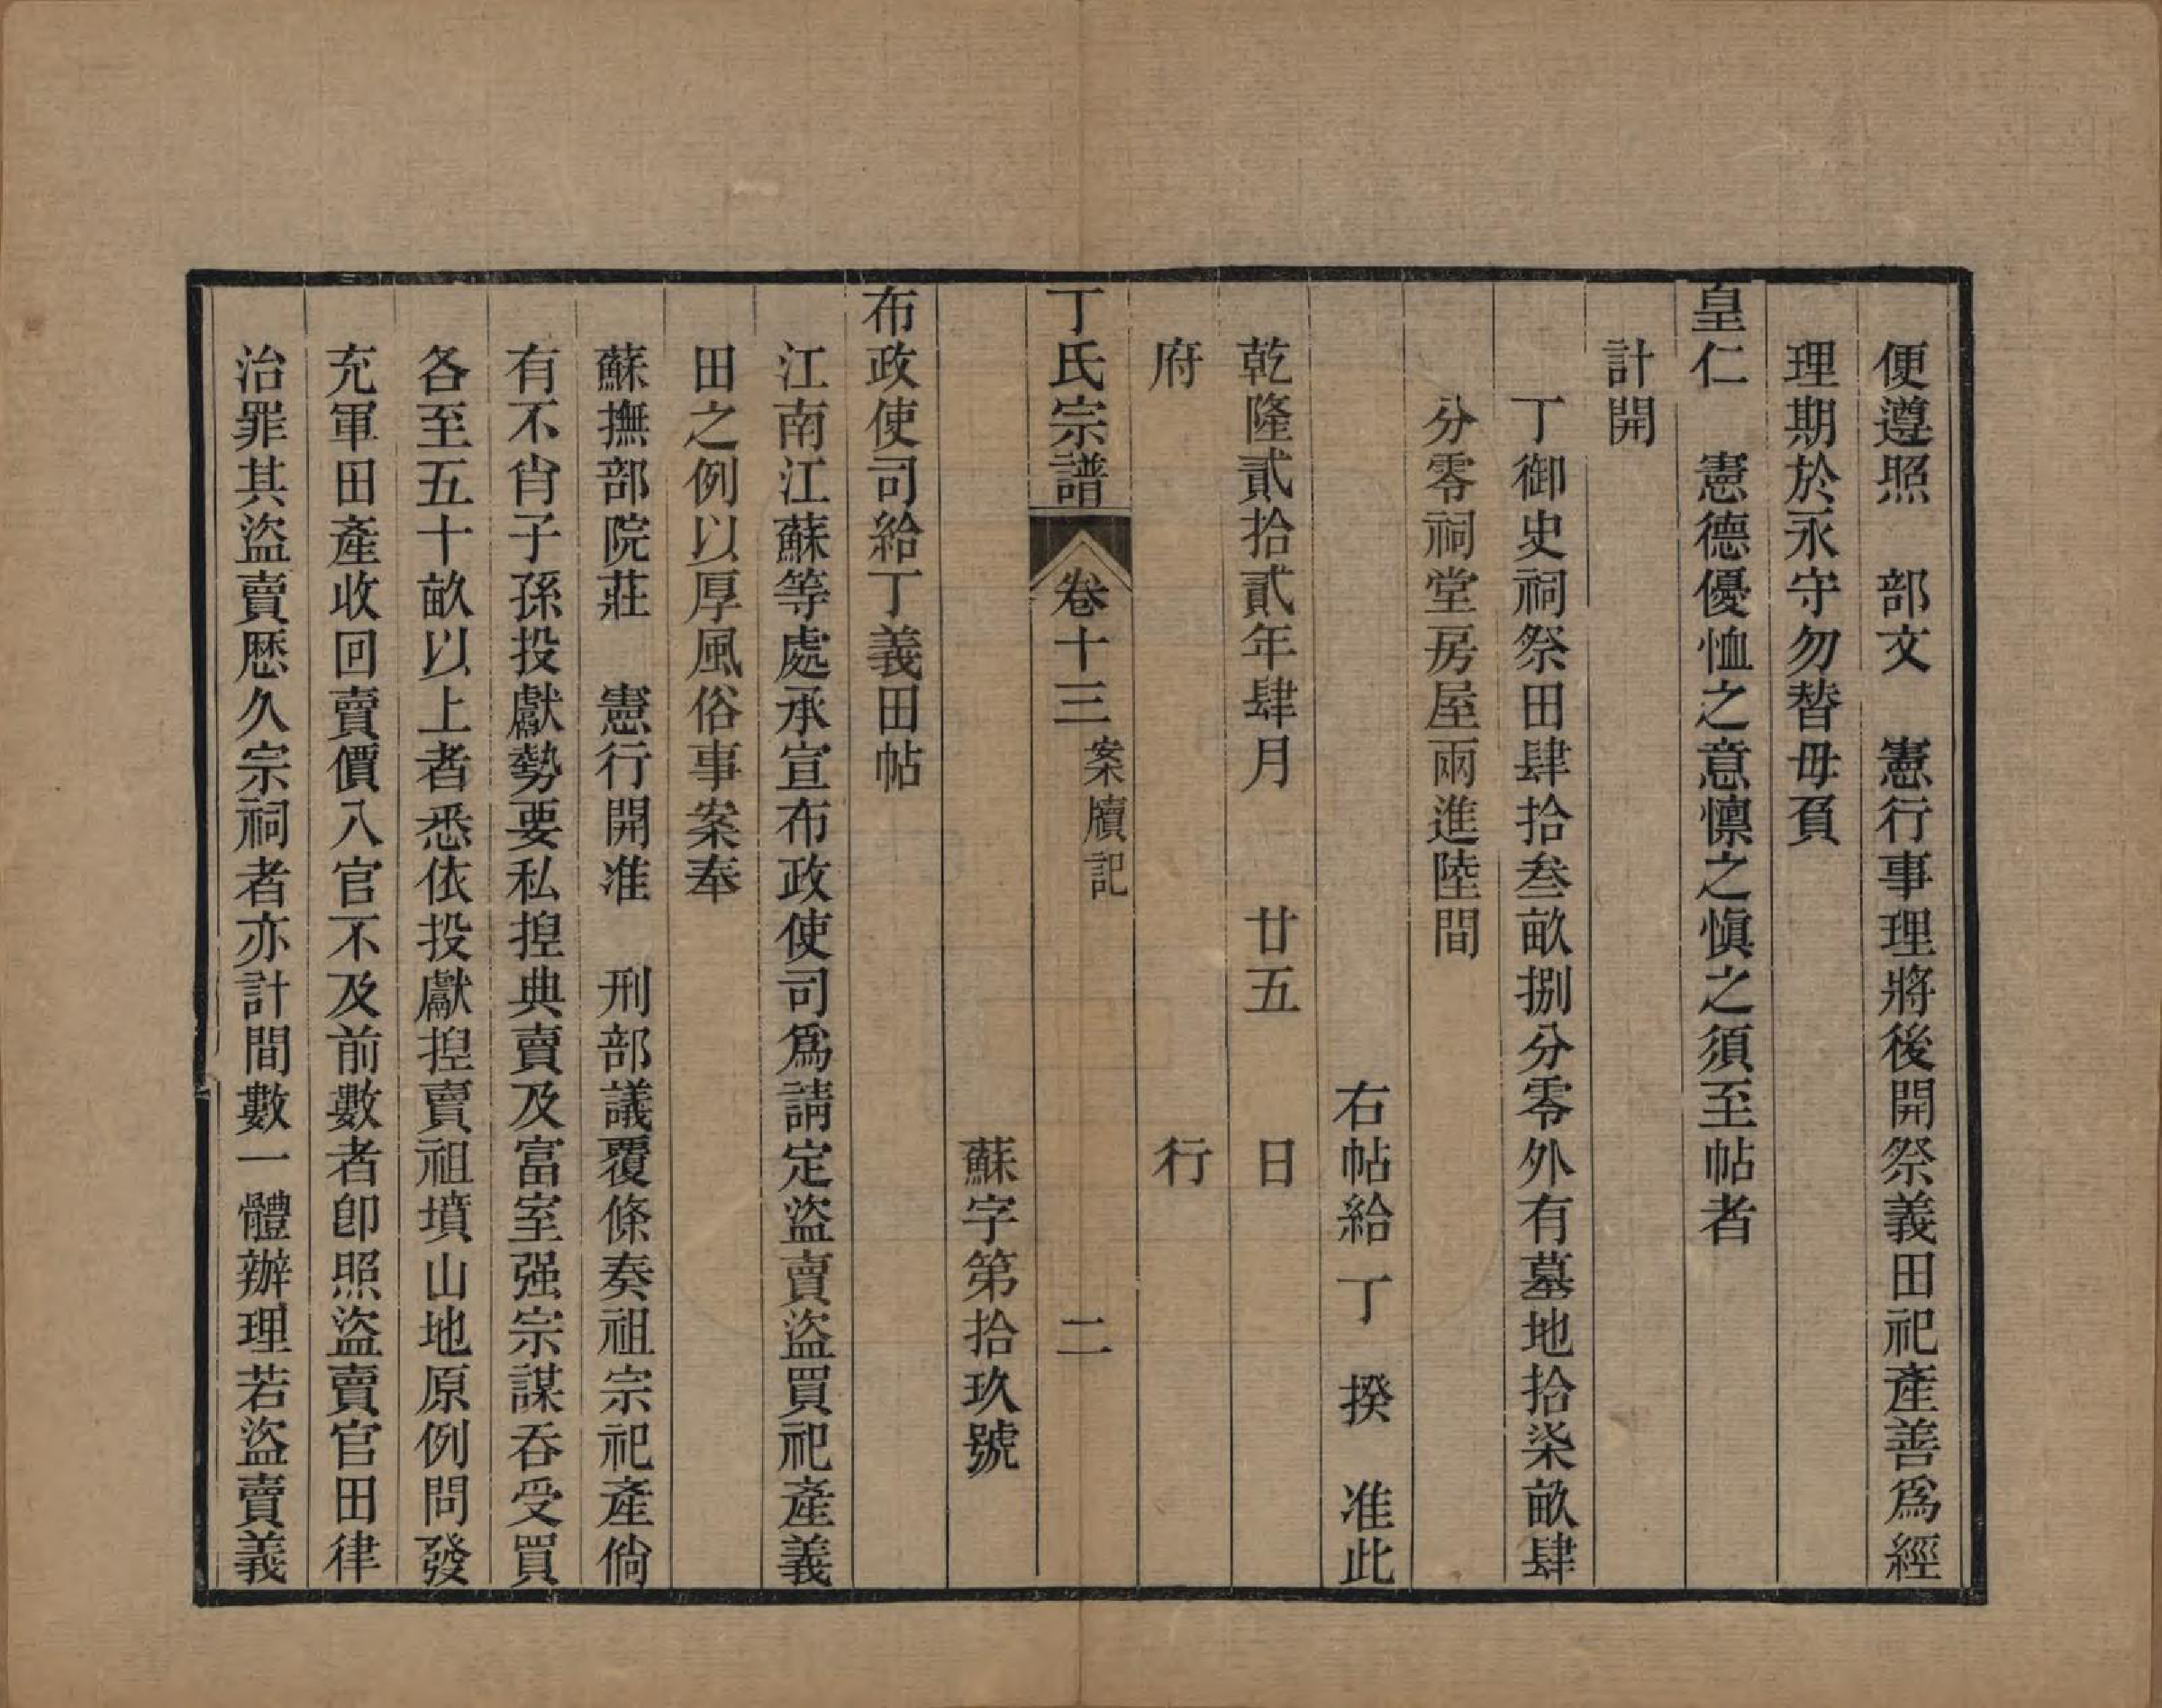 便遵照　部文　憲行事理將後開祭義田祀產善爲經
理期於永守勿替毋負
皇仁　憲德優恤之意懍之愼之須至帖者
計開
丁御史祠祭田肆拾叁畝捌分零外有墓地拾柒畝肆
分零祠堂房屋兩進陸間
右帖給丁　揆　准此
乾隆貳拾貳年肆月　　廿五　　日
府　　　　　　　　　　　　　行
丁氏宗譜　卷十三　案牘記　二
蘇字第拾玖號
布政使司給丁義田帖
江南江蘇等處承宣布政使司爲請定盜賣盜買祀產義
田之例以厚風俗事案奉
蘇撫部院莊　憲行開准　刑部議覆條奏祖宗祀產倘
有不肖子孫投獻勢要私捏典賣及富室强宗謀吞受買
各至五十畝以上者悉依投獻捏賣祖墳山地原例問發
充軍田產收回賣價入官不及前數者卽照盜賣官田律
治罪其盜賣歷久宗祠者亦計間數一體辦理若盜賣義